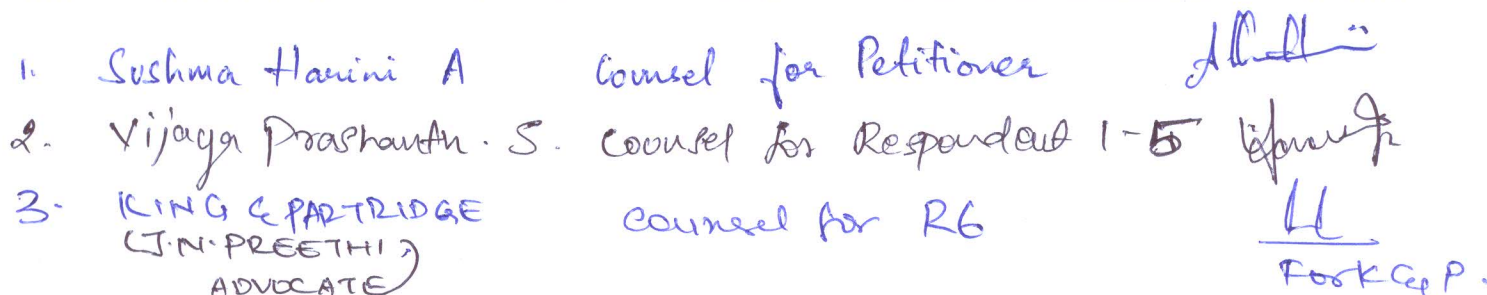 1. Sushma Harini A Counsel for Petitioner
2. Vijaya Prashanth. S. Counsel for Respondent 1-5
3. KING & PARTRIDGE counsel for R6
(J.N. PREETHI, ADVOCATE)
For K & P.